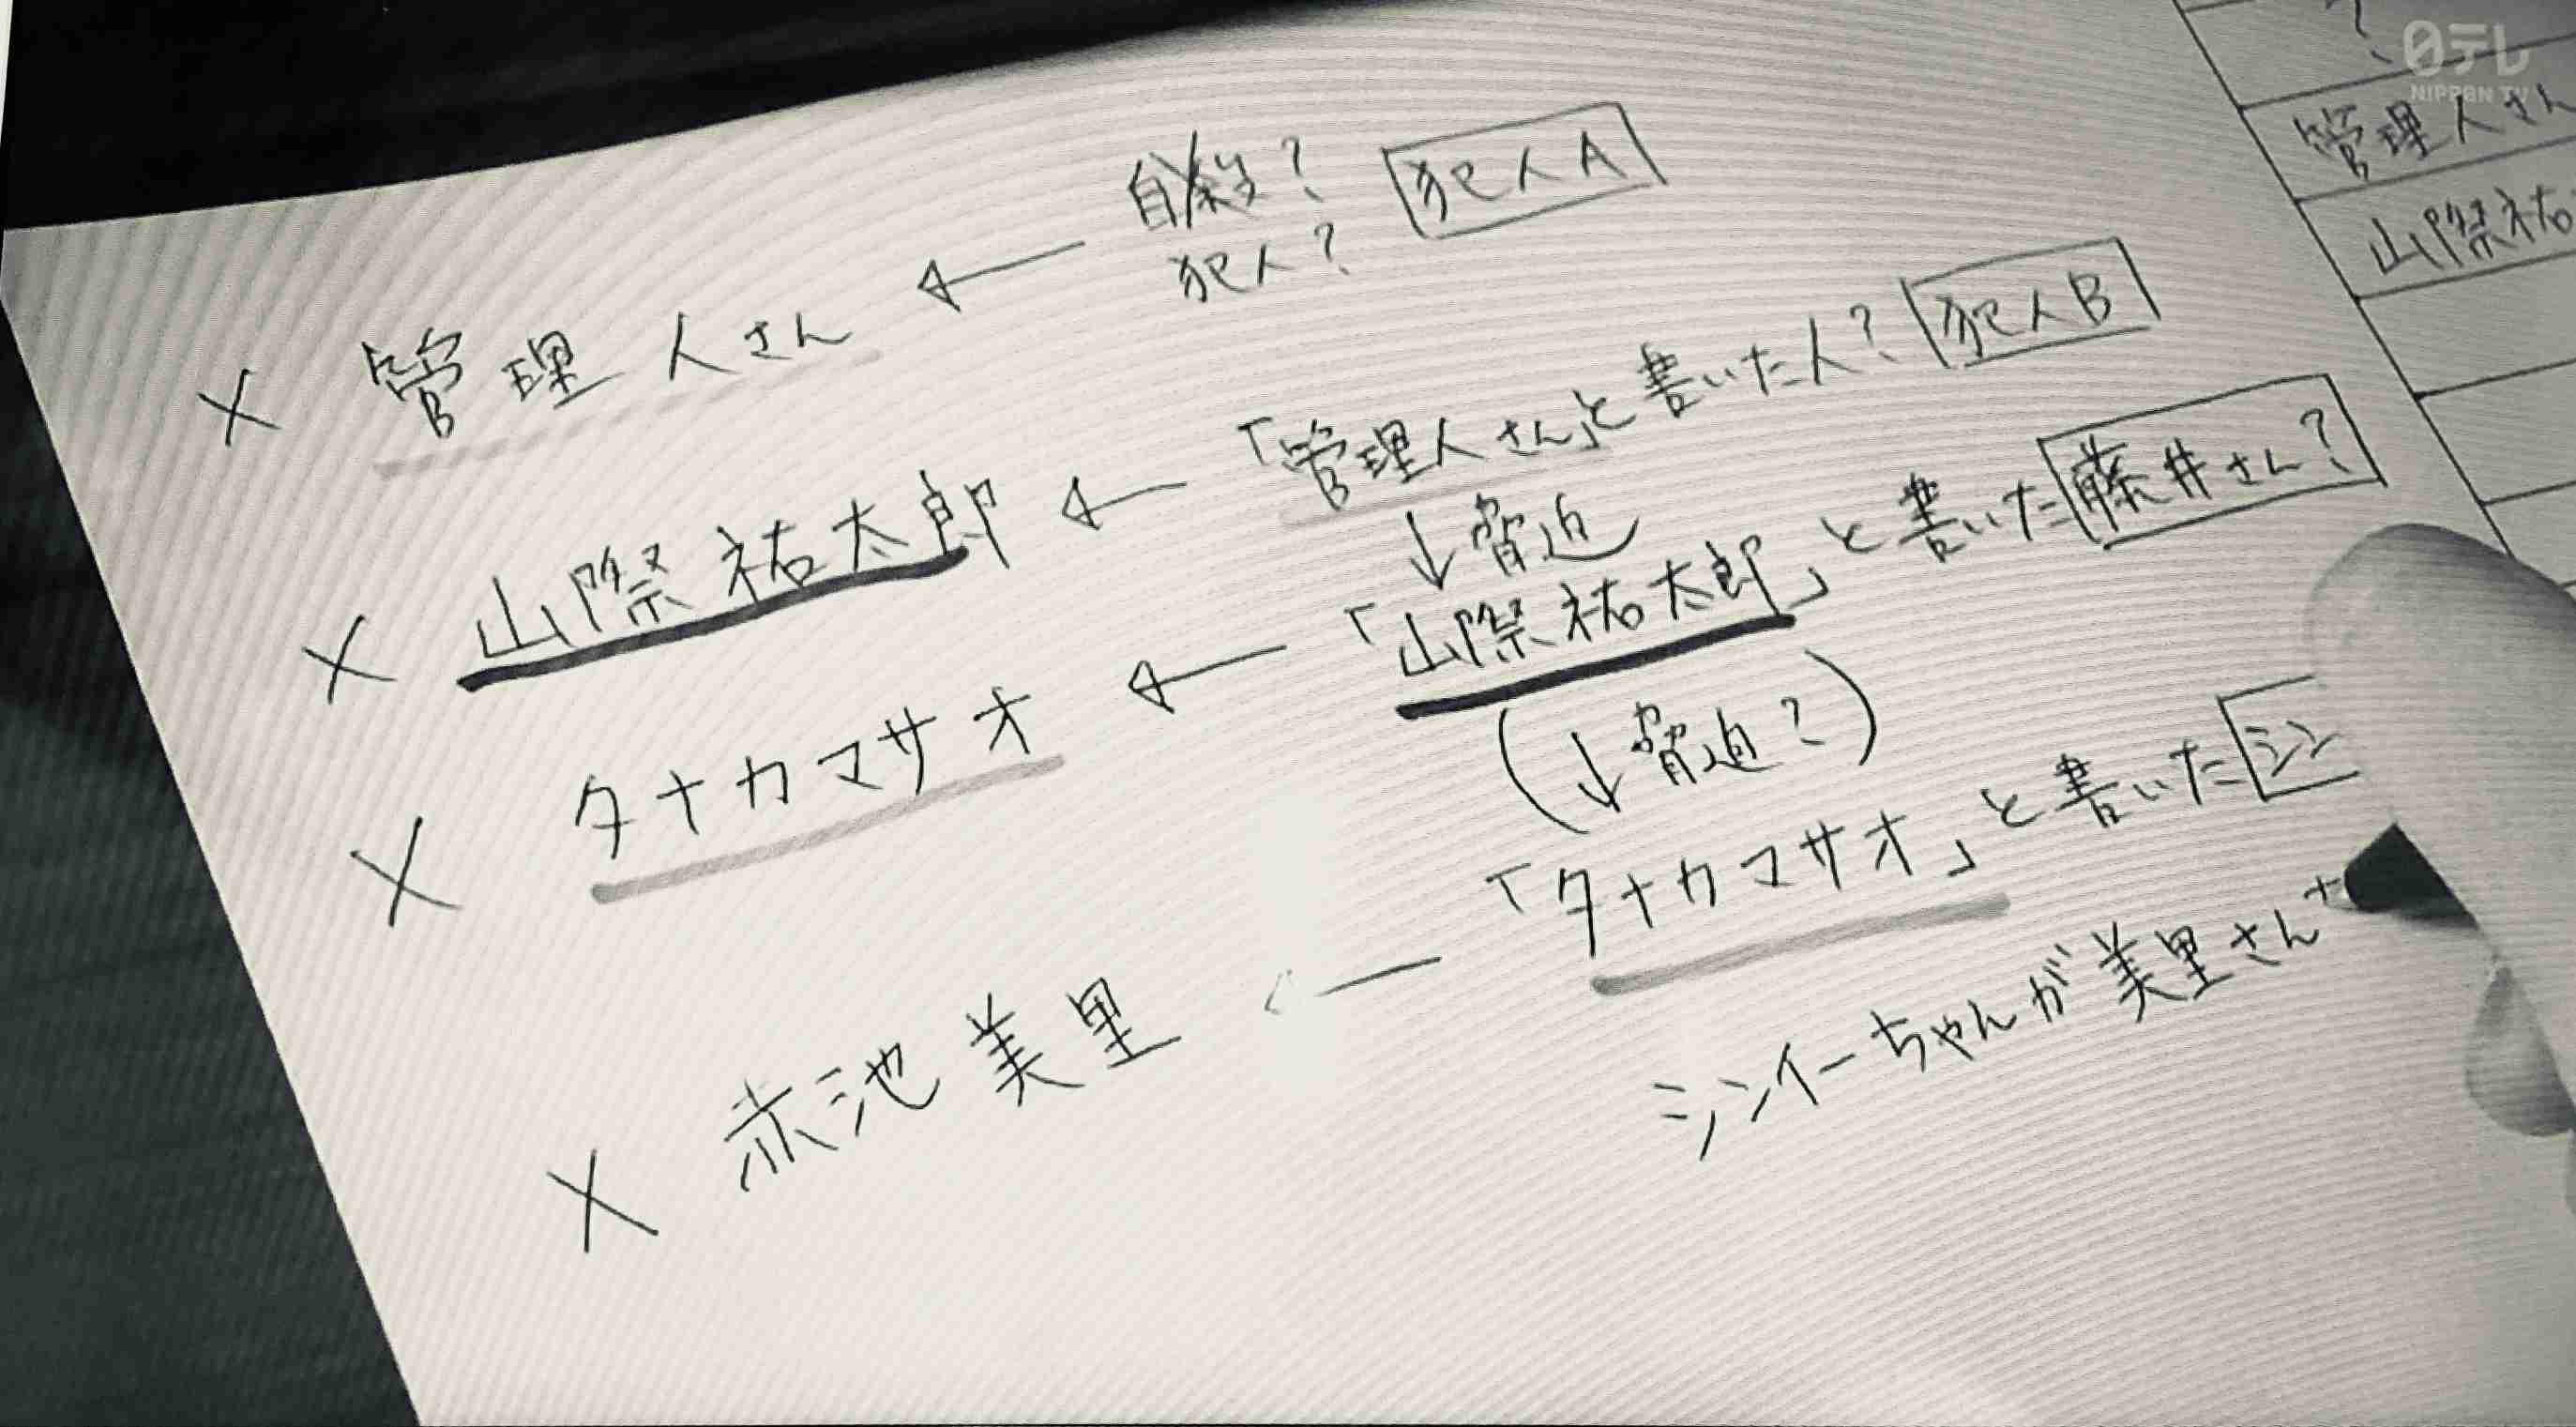 日テレ
NIPPON TV
?
管理人さん
山際祐
自殺? 犯人A
犯人?
× 管理人さん ←
「管理人さん」と書いた人? 犯人B
↓脅迫
× 山際祐太郎 ←
「山際祐太郎」と書いた藤井さん?
(↓脅迫?)
× タナカマサオ ←
「タナカマサオ」と書いたシン
× 赤池美里 ←
シンイーちゃんが美里さん